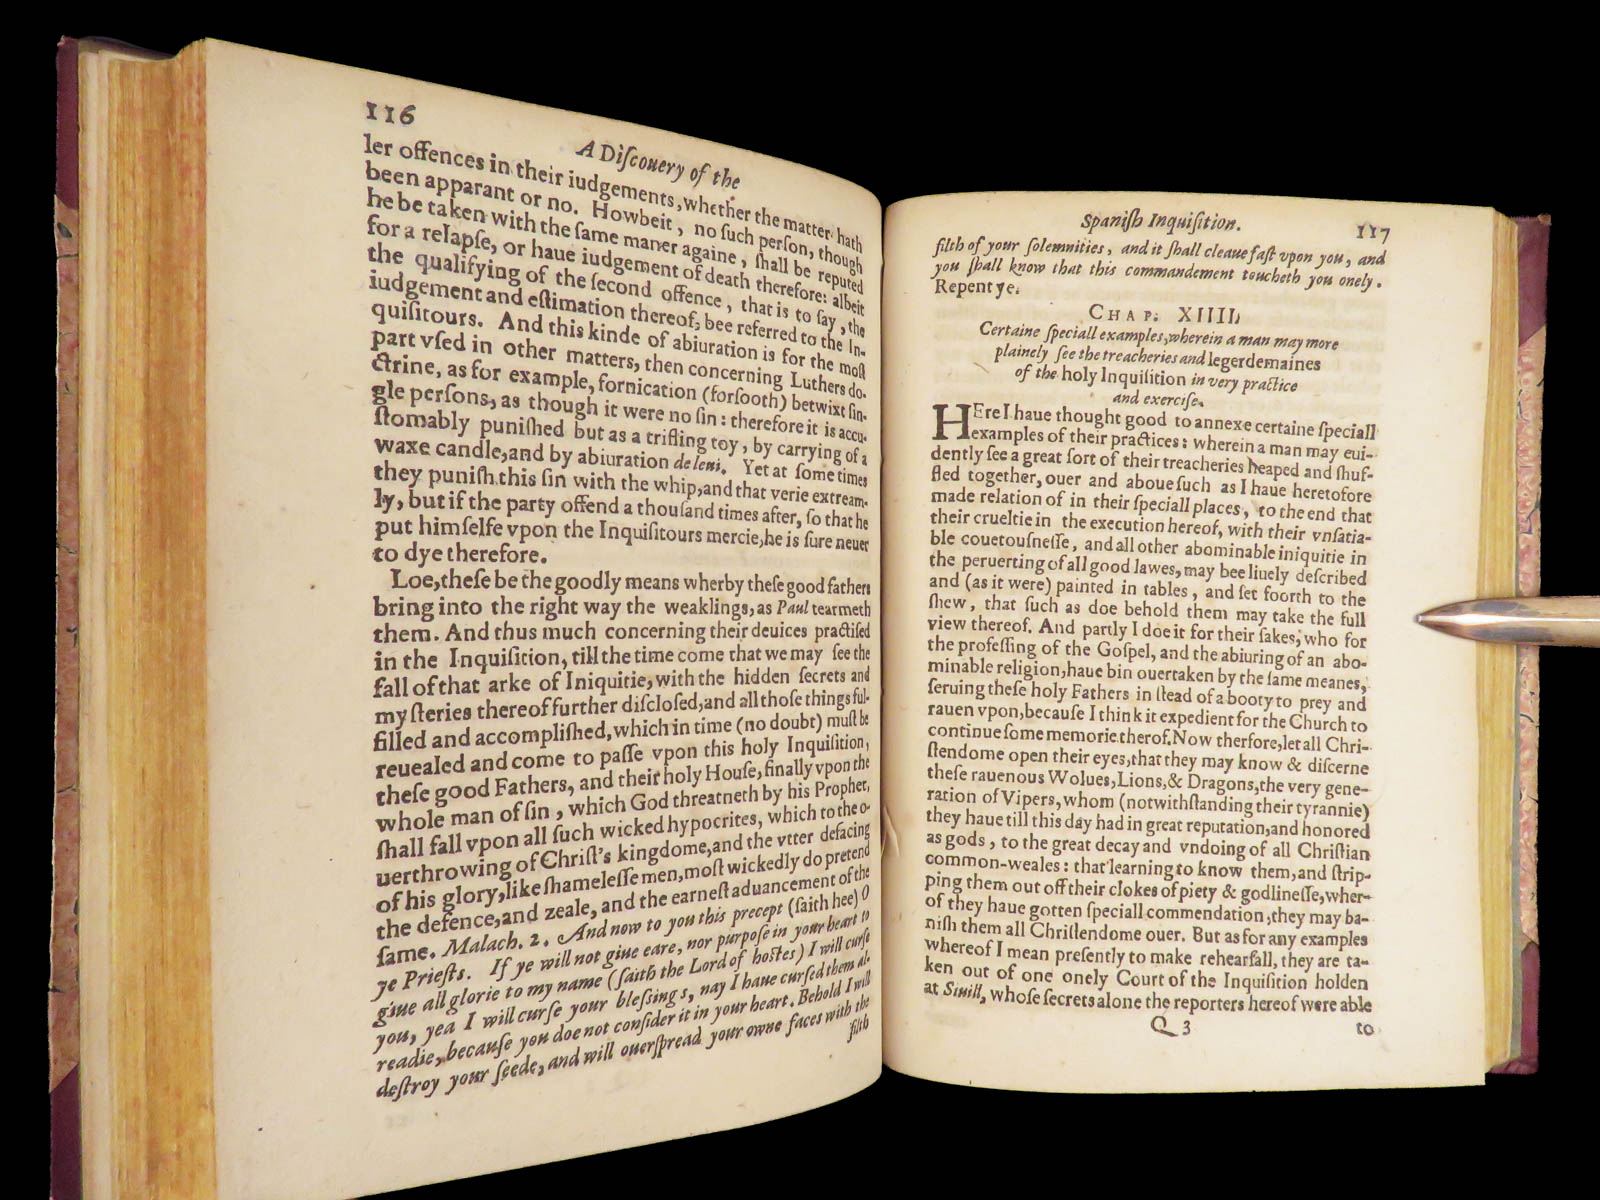 116
A Diſcouery of the
ler offences in their iudgements, whether the matter hath
been apparant or no. Howbeit, no ſuch perſon, though
he be taken with the ſame maner againe, ſhall be reputed
for a relapſe, or haue iudgement of death therefore: albeit
the qualifying of the ſecond offence, that is to ſay, the
iudgement and eſtimation thereof, bee referred to the In-
quiſitours. And this kinde of abiuration is for the moſt
part vſed in other matters, then concerning Luthers do-
ctrine, as for example, fornication (forſooth) betwixt ſin-
gle perſons, as though it were no ſin: therefore it is accu-
ſtomably puniſhed but as a trifling toy, by carrying of a
waxe candle, and by abiuration de leui. Yet at ſome times
they puniſh this ſin with the whip, and that verie extream-
ly, but if the party offend a thouſand times after, ſo that he
put himſelfe vpon the Inquiſitours mercie, he is ſure neuer
to dye therefore.
Loe, theſe be the goodly means wherby theſe good fathers
bring into the right way the weaklings, as Paul tearmeth
them. And thus much concerning their deuices practiſed
in the Inquiſition, till the time come that we may ſee the
fall of that arke of Iniquitie, with the hidden ſecrets and
myſteries thereof further diſcloſed, and all thoſe things ful-
filled and accompliſhed, which in time (no doubt) muſt be
reuealed and come to paſſe vpon this holy Inquiſition,
theſe good Fathers, and their holy Houſe, finally vpon the
whole man of ſin, which God threatneth by his Prophet,
ſhall fall vpon all ſuch wicked hypocrites, which to the o-
uerthrowing of Chriſt's kingdome, and the vtter defacing
of his glory, like ſhameleſſe men, moſt wickedly do pretend
the defence, and zeale, and the earneſt aduancement of the
ſame. Malach. 2. And now to you this precept (ſaith hee) O
ye Prieſts. If ye will not giue eare, nor purpoſe in your heart to
giue all glorie to my name (ſaith the Lord of hoſtes) I will curſe
you, yea I will curſe your bleſsings, nay I haue curſed them al-
readie, becauſe you doe not conſider it in your heart. Behold I will
deſtroy your ſeede, and will ouerſpread your owne faces with the
filth
Spaniſh Inquiſition.
117
filth of your ſolemnities, and it ſhall cleaue faſt vpon you, and
you ſhall know that this commandement toucheth you onely.
Repent ye.
CHAP. XIIII.
Certaine ſpeciall examples, wherein a man may more
plainely ſee the treacheries and legerdemaines
of the holy Inquiſition in very practice
and exerciſe.
HEre I haue thought good to annexe certaine ſpeciall
examples of their practices: wherein a man may eui-
dently ſee a great ſort of their treacheries heaped and ſhuf-
fled together, ouer and aboue ſuch as I haue heretofore
made relation of in their ſpeciall places, to the end that
their crueltie in the execution hereof, with their vnſatia-
ble couetouſneſſe, and all other abominable iniquitie in
the peruerting of all good lawes, may bee liuely deſcribed
and (as it were) painted in tables, and ſet foorth to the
ſhew, that ſuch as doe behold them may take the full
view thereof. And partly I doe it for their ſakes, who for
the profeſſing of the Goſpel, and the abiuring of an abo-
minable religion, haue bin ouertaken by the ſame meanes,
ſeruing theſe holy Fathers in ſtead of a booty to prey and
rauen vpon, becauſe I think it expedient for the Church to
continue ſome memorie therof. Now therfore, let all Chri-
ſtendome open their eyes, that they may know & diſcerne
theſe rauenous Wolues, Lions, & Dragons, the very gene-
ration of Vipers, whom (notwithſtanding their tyrannie)
they haue till this day had in great reputation, and honored
as gods, to the great decay and vndoing of all Chriſtian
common-weales: that learning to know them, and ſtrip-
ping them out off their clokes of piety & godlineſſe, wher-
of they haue gotten ſpeciall commendation, they may ba-
niſh them all Chriſtendome ouer. But as for any examples
whereof I mean preſently to make rehearſall, they are ta-
ken out of one onely Court of the Inquiſition holden
at Siuill, whoſe ſecrets alone the reporters hereof were able
Q 3
to